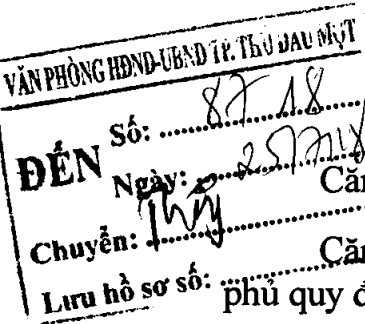 VĂN PHÒNG HĐND-UBND TP. THỦ DẦU MỘT
ĐẾN
Số: 8718
Ngày: 25/7/18
Căn
Chuyển: Thủy
Căn
Lưu hồ sơ số:
phủ quy đ